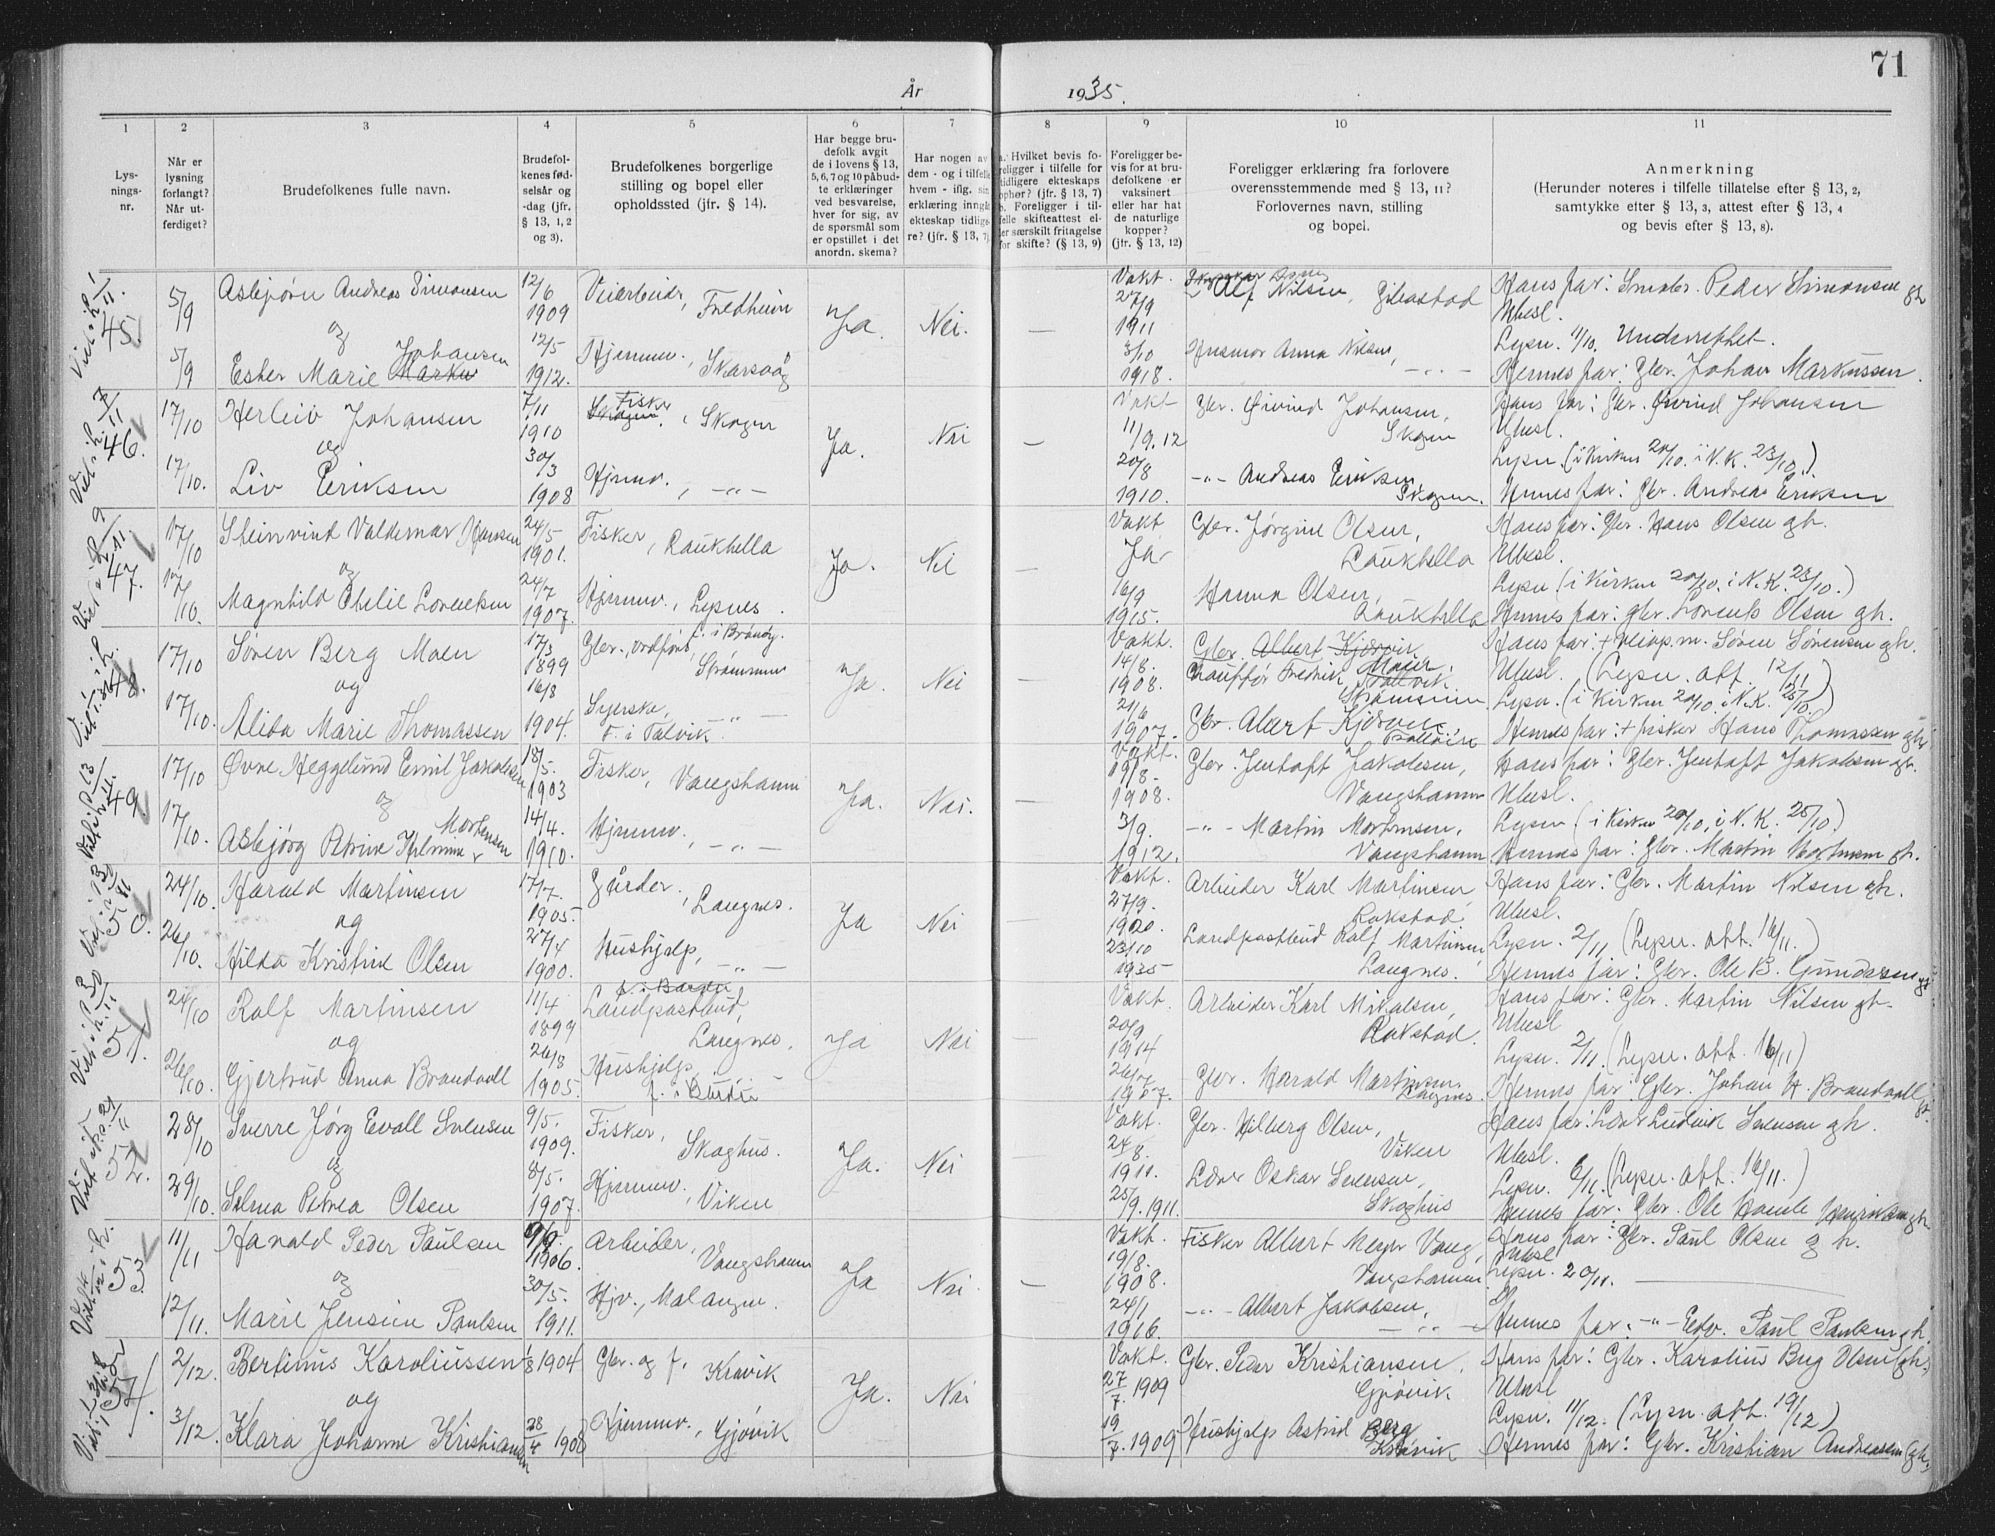 71
År 1935.
1 2 3 4 5 6 7 8 9 10 11
Lysningsnr.
Når er lysning forlangt? Når utferdiget?
Brudefolkenes fulle navn.
Brudefolkenes fødselsår og -dag (jfr. § 13, 1, 2 og 3).
Brudefolkenes borgerlige stilling og bopel eller opholdssted (jfr. § 14).
Har begge brudefolk avgit de i lovens § 13, 5, 6, 7 og 10 påbudte erklæringer ved besvarelse, hver for sig, av de spørsmål som er opstillet i det anordn. skema?
Har nogen av dem - og i tilfelle hvem - iflg. sin erklæring inngått ekteskap tidligere? (jfr. § 13, 7)
a. Hvilket bevis foreligger i tilfelle for tidligere ekteskaps ophør? (jfr. § 13, 7) b. Foreligger i tilfelle skifteattest eller særskilt fritagelse for skifte? (§ 13, 9)
Foreligger bevis for at brudefolkene er vaksinert eller har hat de naturlige kopper? (jfr. § 13, 12)
Foreligger erklæring fra forlovere overensstemmende med § 13, 11? Forlovernes navn, stilling og bopel.
Anmerkning (Herunder noteres i tilfelle tillatelse efter § 13, 2, samtykke efter § 13, 3, attest efter § 13, 4 og bevis efter § 13, 8).
45.
5/9 Asbjørn Andreas Simonsen 12/6 1909 Veiarbeider, Fredheim Ja. Nei. — Vakt. 27/9 1911 Alf Nilsen, Gibostad Hans far: Småbr. Peder Simonsen gh
og
Ubesl.
Lysn. 11/10. Underrettet.
5/9 Ester Marie Johansen 12/5 1912. Hjemmev., Skarsvåg 3/10 1918. Husmor Anna Nilsen, —"— Hennes far: Gbr. Johan Markussen.
46.
17/10 Herleiv Johansen 7/11 1910 Fisker, Skogen Ja. Nei — Vakt 11/9.12 Gbr. Øivind Johansen, Skogen Hans far: Gbr. Øivind Johansen
og
Ubesl.
Lysn. (i kirken 20/10. i N.K. 23/10.)
17/10. Liv Eriksen 30/3 1908 Hjemmev., —"— 20/8 1910. —"— Andreas Eriksen Skogen. Hennes far: Gbr. Andreas Eriksen
47.
17/10 Steinvind Valdemar Hansen 24/5 1901. Fisker, Laukhella Ja. Nei — Vakt Ja Gbr. Jørgine Olsen, Laukhella Hans far: Gbr. Hans Olsen gh.
og
Ubesl.
Lysn (i Kirken 20/10. i N.K. 23/10.)
17/10. Magnhild Otelie Lorentsen 24/7 1907. Hjemmev., Lysnes. 16/9 1915. Hanna Olsen, Laukhella Hennes far: gbr. Lorents Olsen gh.
48.
17/10 Søren Berg Moen 17/3 1899 Gbr., ordfører, f. i Brøndøy. Strømmen Ja. Nei — Vakt. 14/8. 1908. Gbr. Albert Kjervik Chauffør Fredrik Meier, Strømmen Hans far: + veiop.m. Søren Sørensen gh.
og
Ubesl. (Lysn. att. 12/11)
Lysn. (i Kirken 20/10. i N.K. 25/10.)
17/10. Alida Marie Thomassen 16/8 1904. Syerske, —"— F. i Talvik. 21/6 1907. Hennes far: + fisker Hans Thomassen gh.
49.
17/10 Øvre Heggelund Emil Jakobsen 18/5. 1903 Fisker, Vangshamn Ja. Nei. — Vakt. 19/8- 1908. Gbr. Jentoft Jakobsen, Vangshamn Hans far: Gbr. Jentoft Jakobsen gh.
og
Ubesl.
Lysn (i Kirken 20/10, i N.K. 25/10.)
17/10. Asbjørg Petrine Mortensen 14/4. 1910. Hjemmev., —"— 3/9. 1912. —"— Martin Mortensen, Vangshamn Hennes far: Gbr. Martin Mortensen gh.
50.
24/10. Harald Martinsen 17/7. 1905. Gårdbr., Langnes. Ja Nei — Vakt. 27/9. 1920. Arbeider Karl Martinsen, Rokstad Hans far: Gbr. Martin Nilsen gh.
og
Ubesl.
Lysn. 2/11 (Lysn. att. 16/11.)
26/10. Hilda Kristine Olsen 27/4 1900. Hushjelp, —"— 23/10 1935 Landpostbud Rolf Martinsen Langnes. Hennes far: Gbr. Ole B. Gundersen gh
51.
24/10 Rolf Martinsen 11/4 1899 Landpostbud, Langnes. Ja Nei — Vakt. 20/9 1914 Arbeider Karl Mikalsen, Rokstad. Hans far: Gbr. Martin Nilsen gh-
og
Ubesl
Lysn. 2/11. (Lysn. att. 16/11)
26/10. Gjertrud Anna Brandvoll 26/8 1905. Hushjelp, Gbr. Harald Martinsen Langnes. Hennes far: Gbr. Johan H. Brandvoll gh.
52.
28/10 Sverre Jørg Evall Svensen 9/5. 1909. Fisker, Skoghus. Ja. Nei — Vakt. 24/8. 1911. Gbr. Hilberg Olsen, Viken Hans far: Ludvik Svensen gh.
og
Ubesl.
Lysn. 6/11. (Lysn. att. 16/11.)
29/10. Selma Petrea Olsen 8/5. 1907. Hjemmev., Viken 25/9. 1911. Oskar Svensen, Skoghus Hennes far: Gbr. Ole Henriksen gh
53
11/11 Harald Peder Paulsen 9/9. 1906. Arbeider, Vangshamn Ja Nei. — Vakt. 19/8. 1908. Fisker Albert Meyer Vang, Vangshamn Hans far: Gbr. Paul Olsen gh.
og
Ubesl
Lysn. 20/11. —
12/11. Marie Jensine Paulsen 30/5. 1911. Hjv., Malangen. 24/1 1916. —"— Albert Jakobsen, —"— Hennes far: —"— Edv. Paul Paulsen gh.
54.
2/12. Bertinus Karoliussen 1/8 1904 Gbr. og f., Kravik Ja. Nei Vakt. 27/7. 1909 Gbr. Peder Kristiansen, Gjøvik Hans far: Gbr. Karolius Brug Olsen (gh.)
og
Ubesl
Lysn. 11/12. (Lysn. att. 19/12)
3/12. Klara Johanne Kristiansen 28/4 1908 Hjemmev., Gjøvik 19/7. 1909 Hushjelp Astrid Berg Kravik Hennes far: Gbr. Kristian Andreasen (gh.)